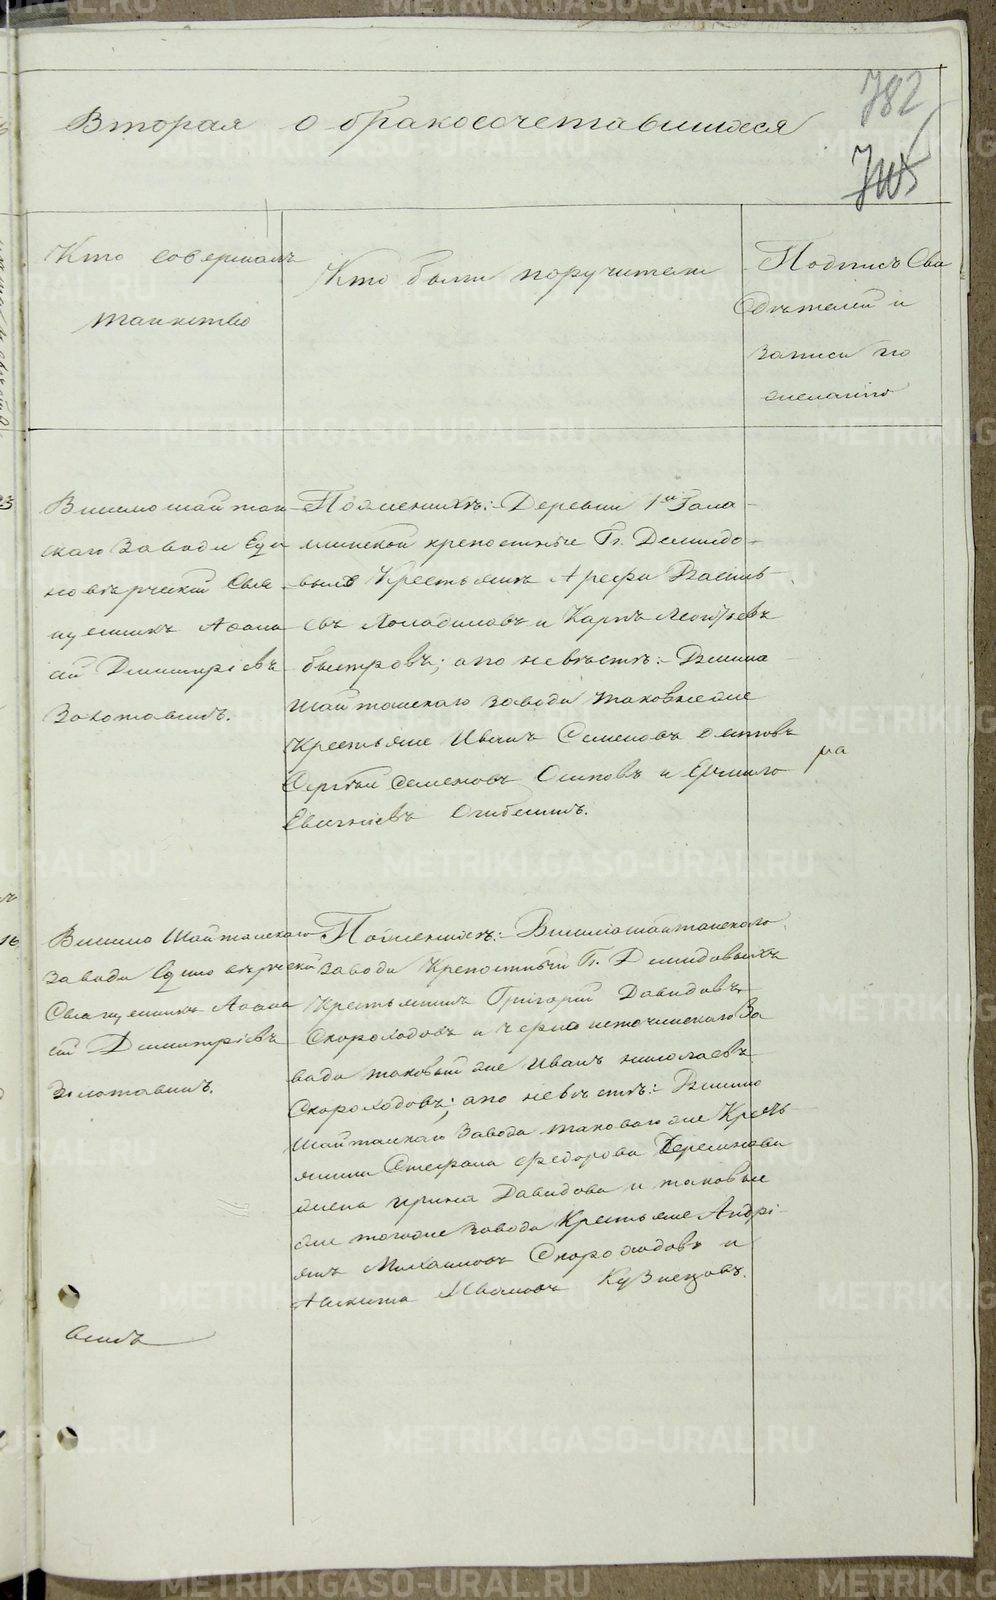 782
Вторая о бракосочетавшихся
Кто совершалъ
таинство
Кто были поручители
Подпись Сви
дѣтелей и
записи по
желанію
Висимошайтан
скаго Завода Еди
новѣрческій Свя
щенникъ Афана
сій Димитріевъ
Золотавинъ.
По женихѣ:- Деревни 1й Гала-
шинской крепостные Гг. Демидо-
выхъ Крестьяне Арефа Василь-
евъ и Карпъ Леонтьевъ
Быстровъ; а по невѣстѣ:- Висимо
Шайтанскаго завода таковые же
Крестьяне Иванъ Семеновъ
Сергѣй Семеновъ Осиповъ и Ермило
Евгеніевъ Огибенинъ.
Висимо Шайтанскаго
завода Единовѣрческій
Священникъ Афана
сій Димитріевъ
Золотавинъ.
По женихѣ:- Висимошайтанскаго
завода Крепостный Гг. Демидовыхъ
Крестьянинъ Григорій Давидовъ
Скороходовъ и Черноисточинскаго За
вода таковый же Иванъ Николаевъ
Скороходовъ; а по невѣстѣ:- Висимо
Шайтанскаго Завода таковаго же Кресть
янина Стефана Федорова
жена Ирина Давидова и таковые
же тогоже завода Крестьяне Андрі-
янъ Михаиловъ Скороходовъ и
Никита Ивановъ Кузнецовъ.
METRIKI.GASO-URAL.RU